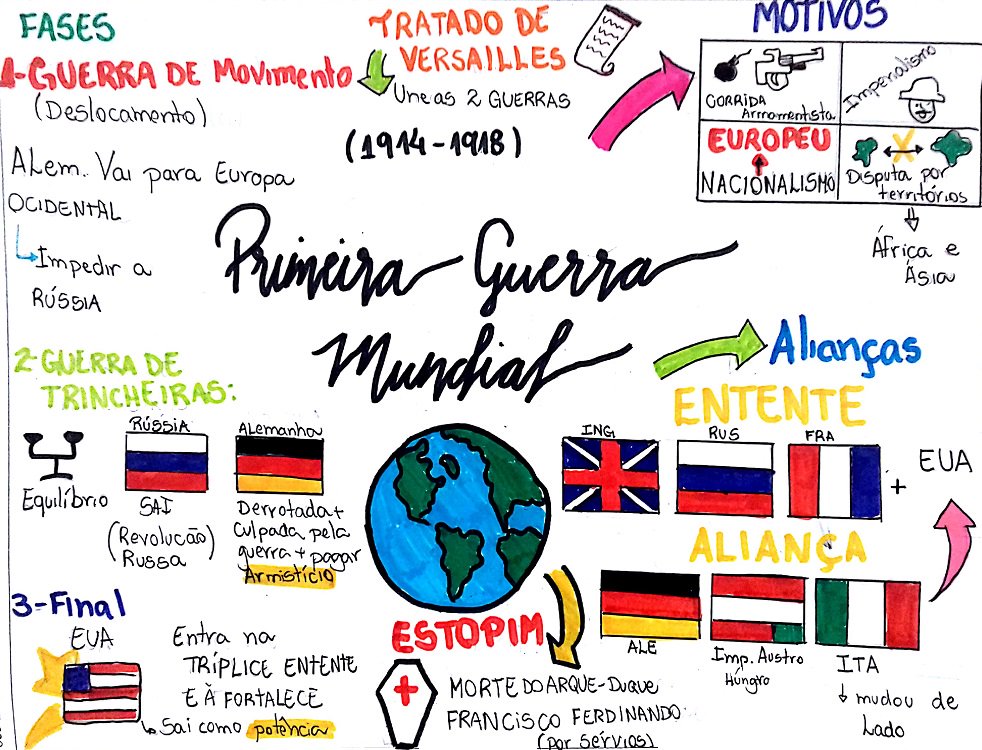 FASES
1-GUERRA DE MOVIMENTO
(Deslocamento)
ALem. Vai para Europa
OCIDENTAL
Impedir a
RÚSSIA
TRATADO DE
VERSAILLES
Une as 2 GUERRAS
(1914-1918)
MOTIVOS
CORRIDA
Armamentista
Imperialismo
EUROPEU
NACIONALISMO
Disputa por
territórios
África e
Ásia
Primeira Guerra
Mundial
2-GUERRA DE
TRINCHEIRAS:
Equilíbrio
RÚSSIA
SAI
(Revolução)
Russa
ALemanha
Derrotada +
Culpada pela
guerra + pagar
Armistício
3-Final
EUA
Entra na
TRÍPLICE ENTENTE
E À FORTALECE
Sai como potência
Alianças
ENTENTE
ING
RUS
FRA
+
EUA
ALIANÇA
ALE
Imp. Austro
Húngro
ITA
mudou de
Lado
ESTOPIM
MORTE DO ARQUE-DUQUE
FRANCISCO FERDINANDO
(por sérvios)